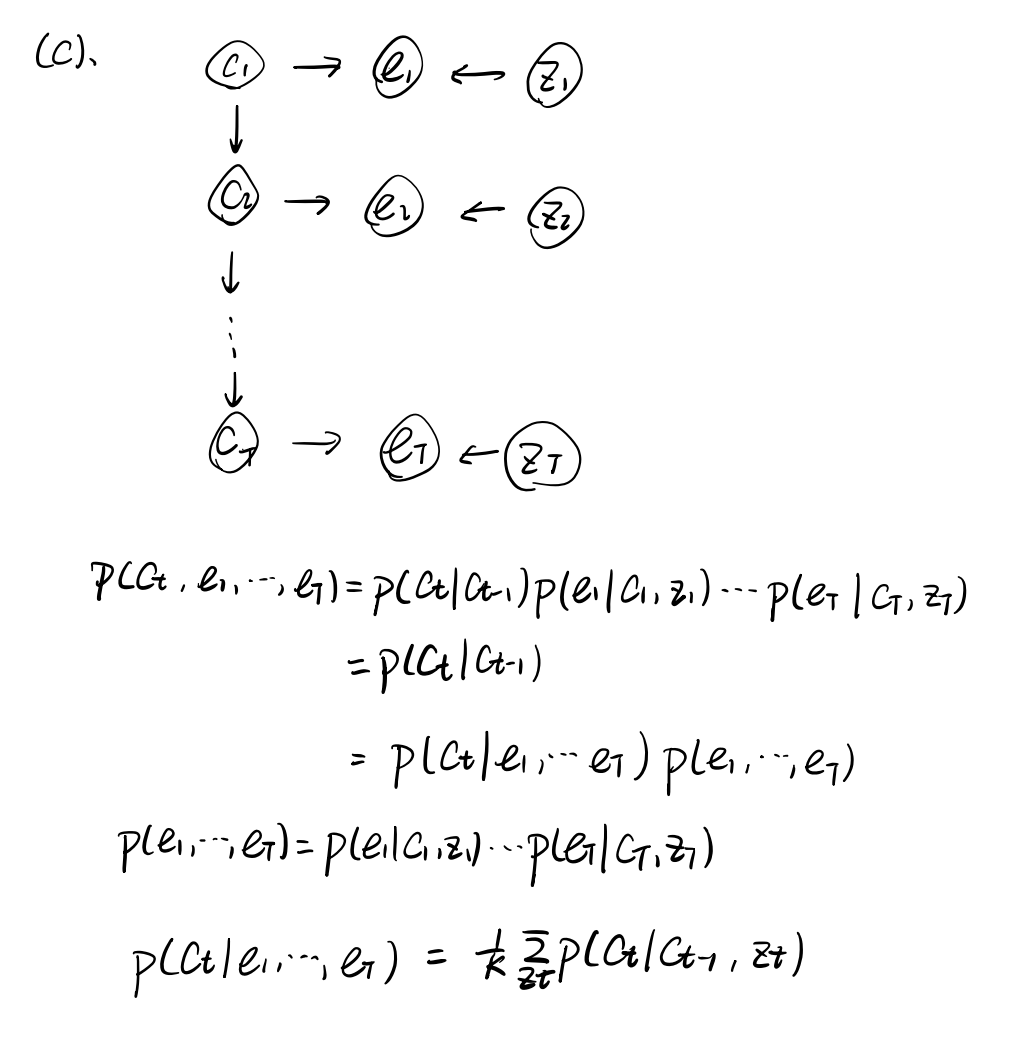 (C)、
C₁ → e₁ ← z₁
↓
C₂ → e₂ ← z₂
↓
⋮
↓
C_T → e_T ← z_T
p(Ct, e₁, ⋯, e_T) = p(Ct|Ct-1)p(e₁|C₁, z₁) ⋯ p(e_T|C_T, z_T)
= p(Ct|Ct-1)
= p(Ct|e₁, ⋯ e_T) p(e₁, ⋯, e_T)
p(e₁, ⋯, e_T) = p(e₁|C₁, z₁) ⋯ p(e_T|C_T, z_T)
p(Ct|e₁, ⋯, e_T) = 1/k Σ_zt p(Ct|Ct-1, zt)